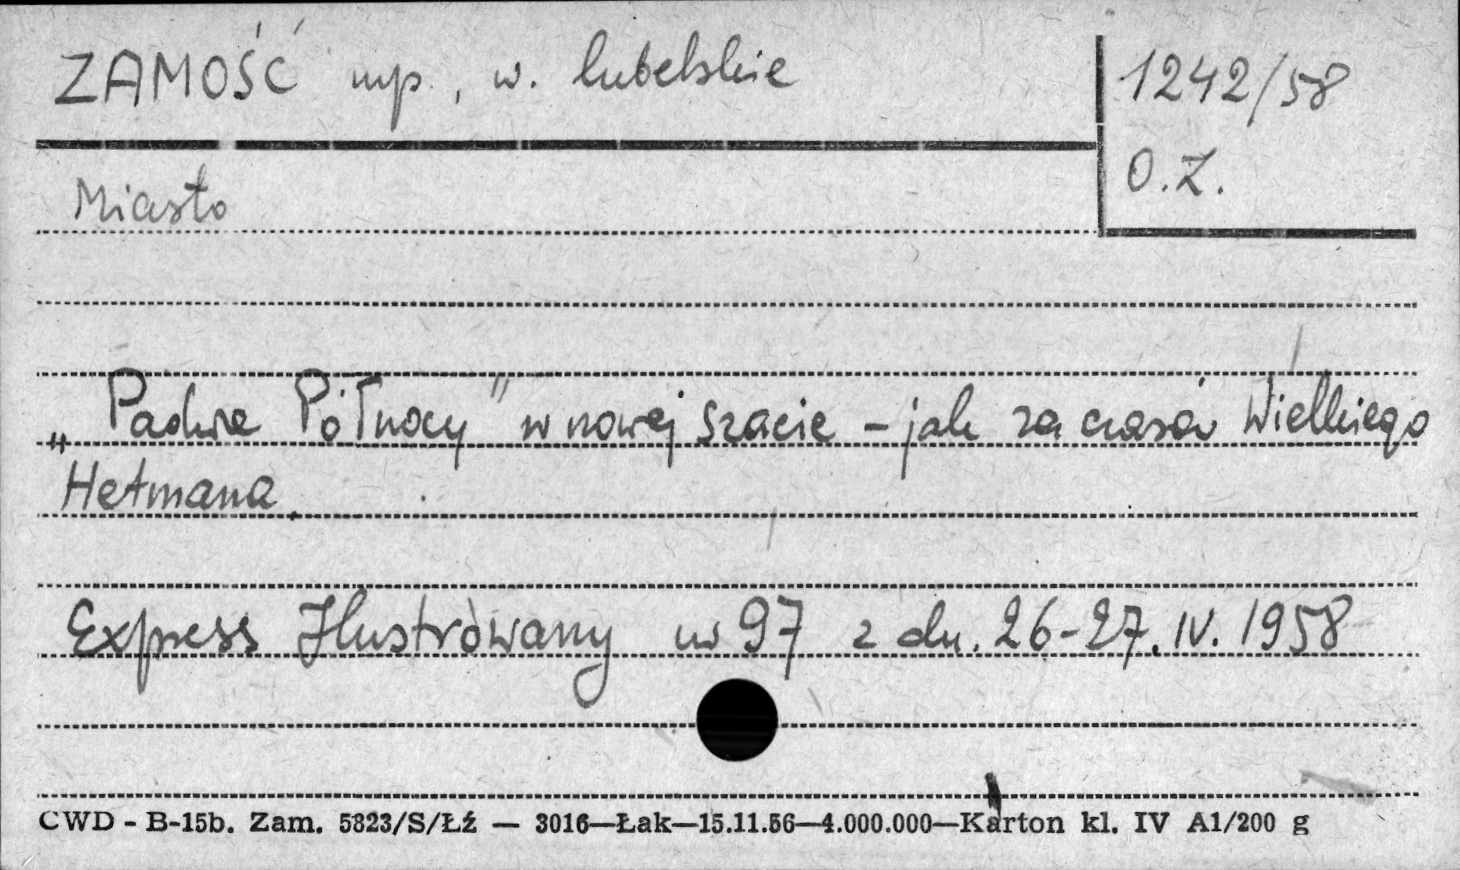 ZAMOŚĆ mp., w. lubelskie
1242/58
O.Z.
Miasto
„Padwa Północy" w nowej szacie – jak za czasów Wielkiego
Hetmana.
Express Ilustrowany nr 97 z dn. 26-27.IV.1958
CWD - B-15b. Zam. 5823/S/Łź — 3016—Łak—15.11.56—4.000.000—Karton kl. IV A1/200 g